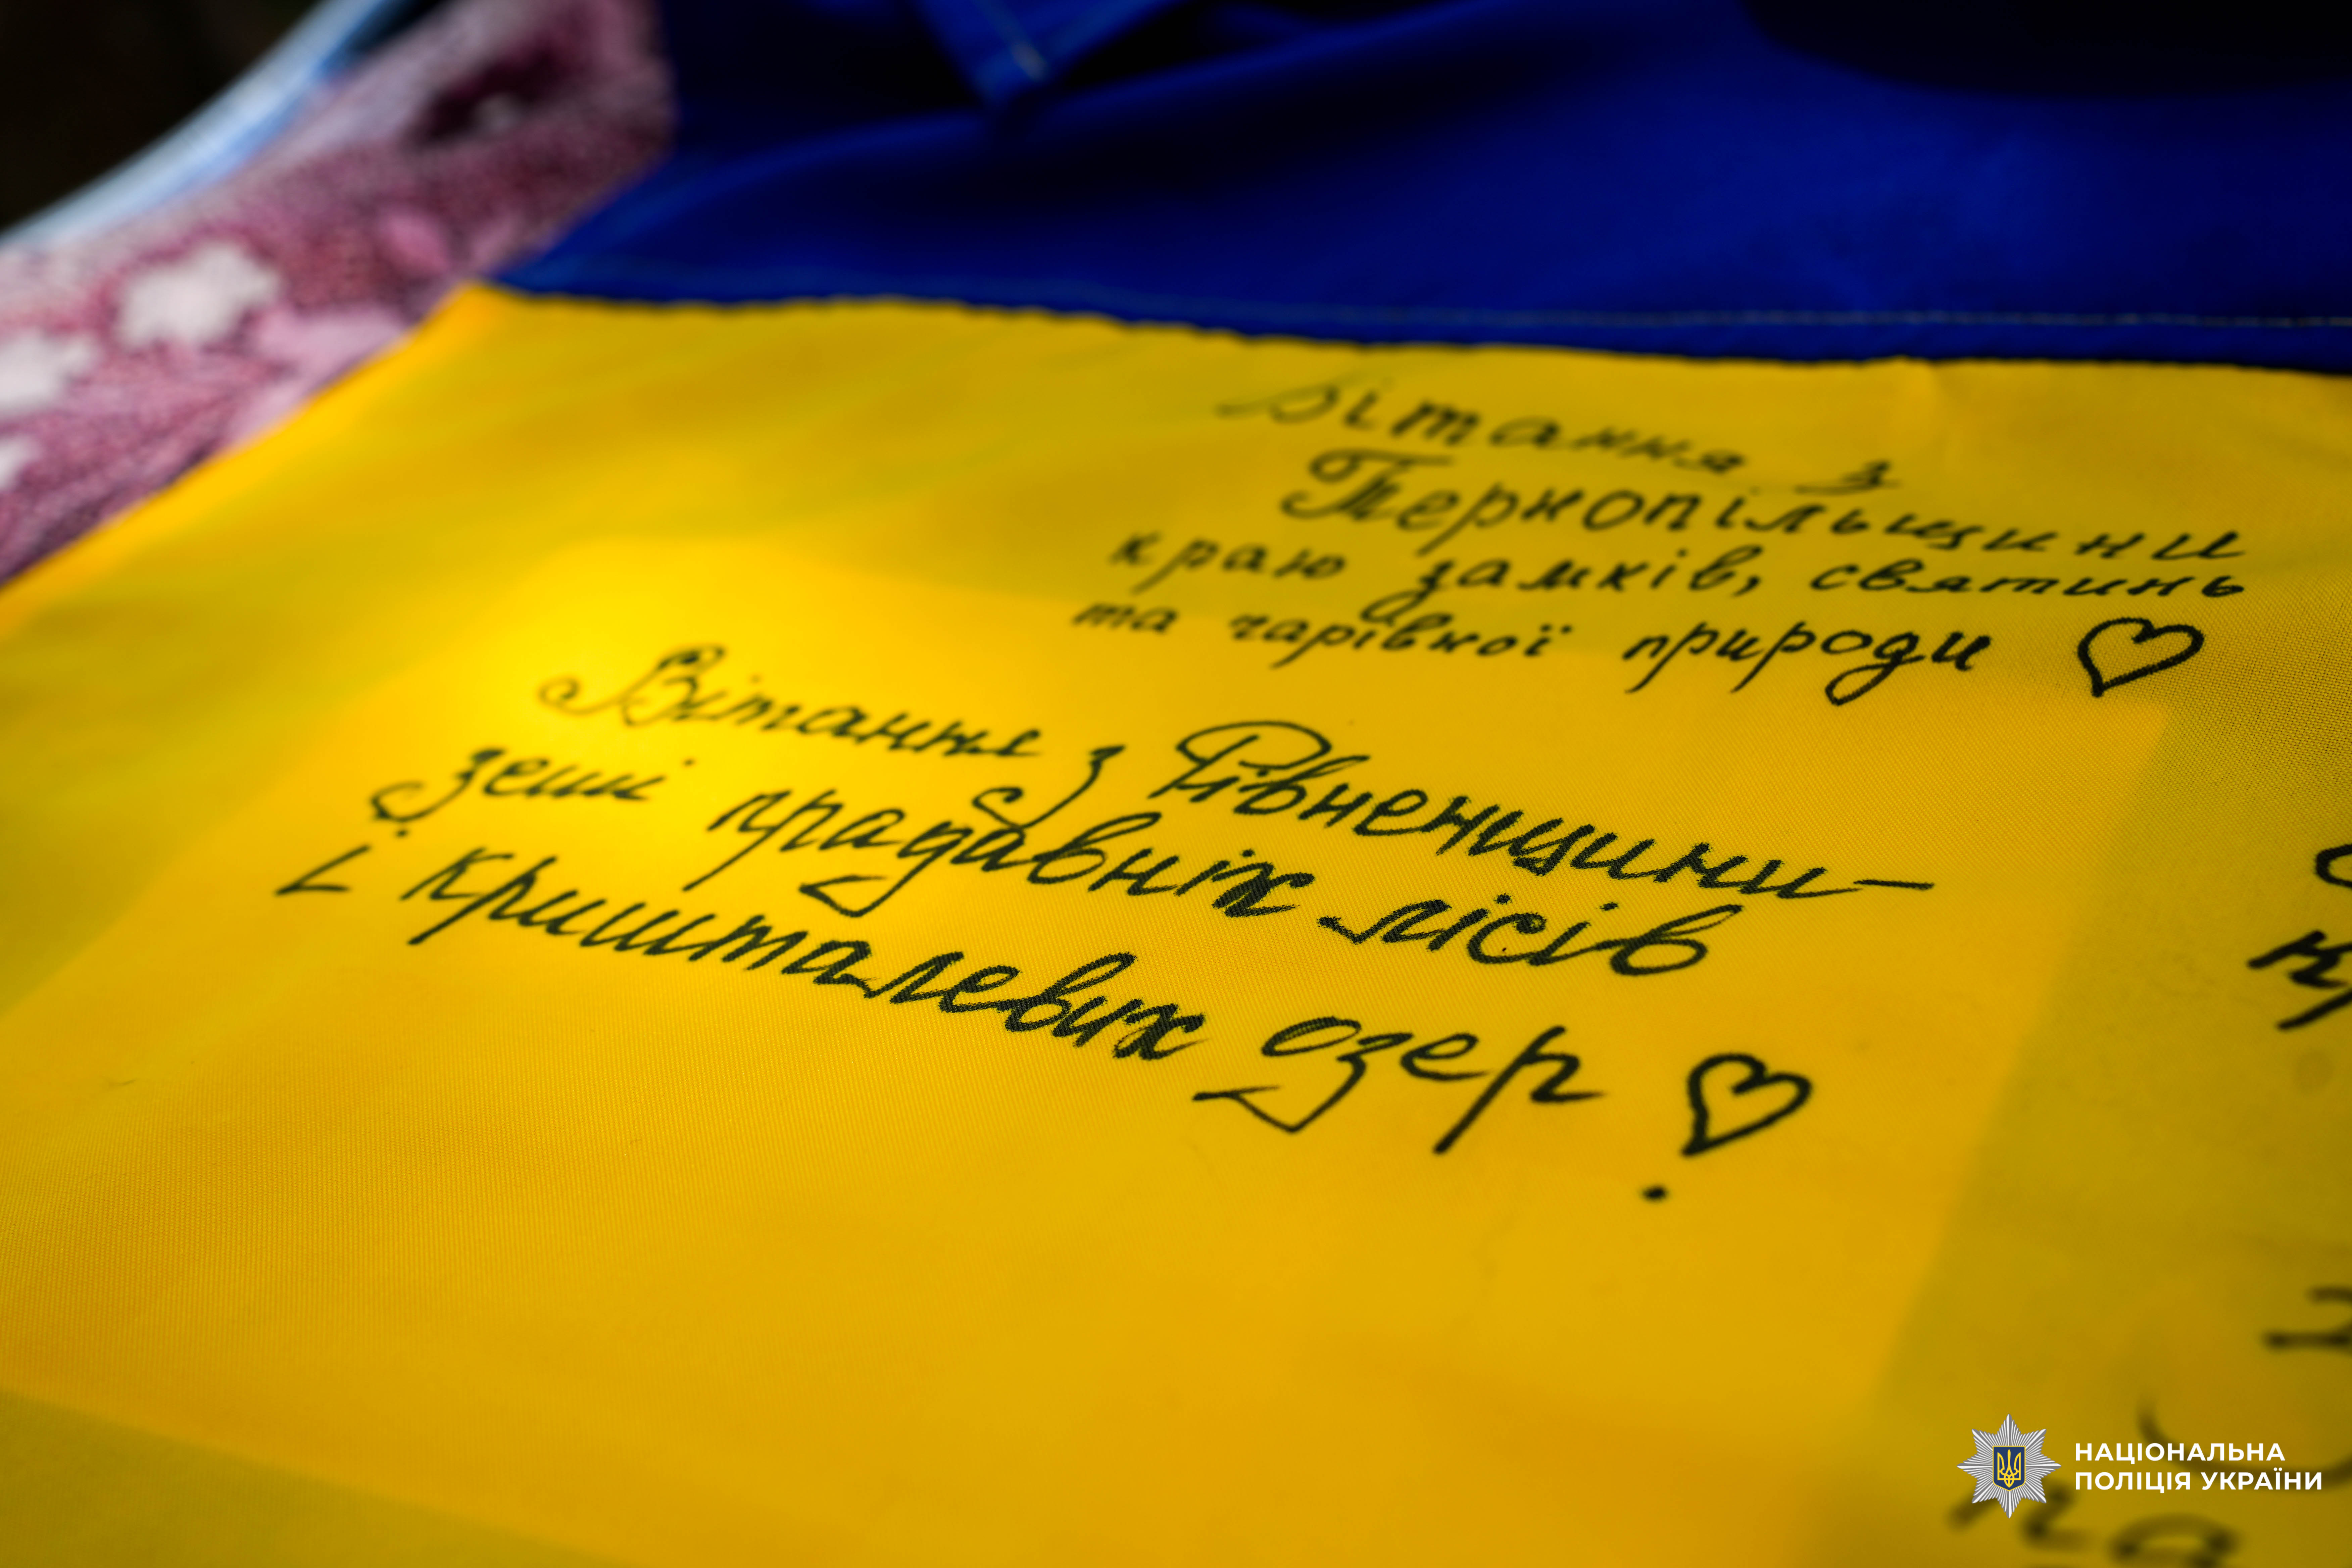 Вітання з
Тернопільщини
краю замків, святинь
та чарівної природи ♡
Вітання з Рівненщини–
землі прадавніх лісів
і кришталевих озер ♡.
НАЦІОНАЛЬНА
ПОЛІЦІЯ УКРАЇНИ